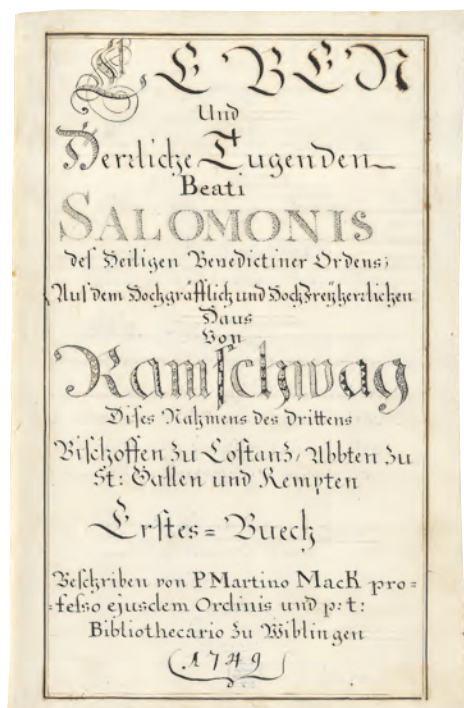 LEBEN
Und
Herrliche Tugenden
Beati
SALOMONIS
deß Heiligen Benedictiner Ordens;
Aus dem Hochgräfflich und Hochfreÿherrlichen
Haus
Von
Ramschwag
Dises Nahmens des drittens
Bischoffen zu Costanz, Abbten zu
St: Gallen und Kempten
Erstes= Buech
Beschriben von P Martino Mack pro=
=fesso ejusdem Ordinis und p: t:
Bibliothecario zu Wiblingen
1749